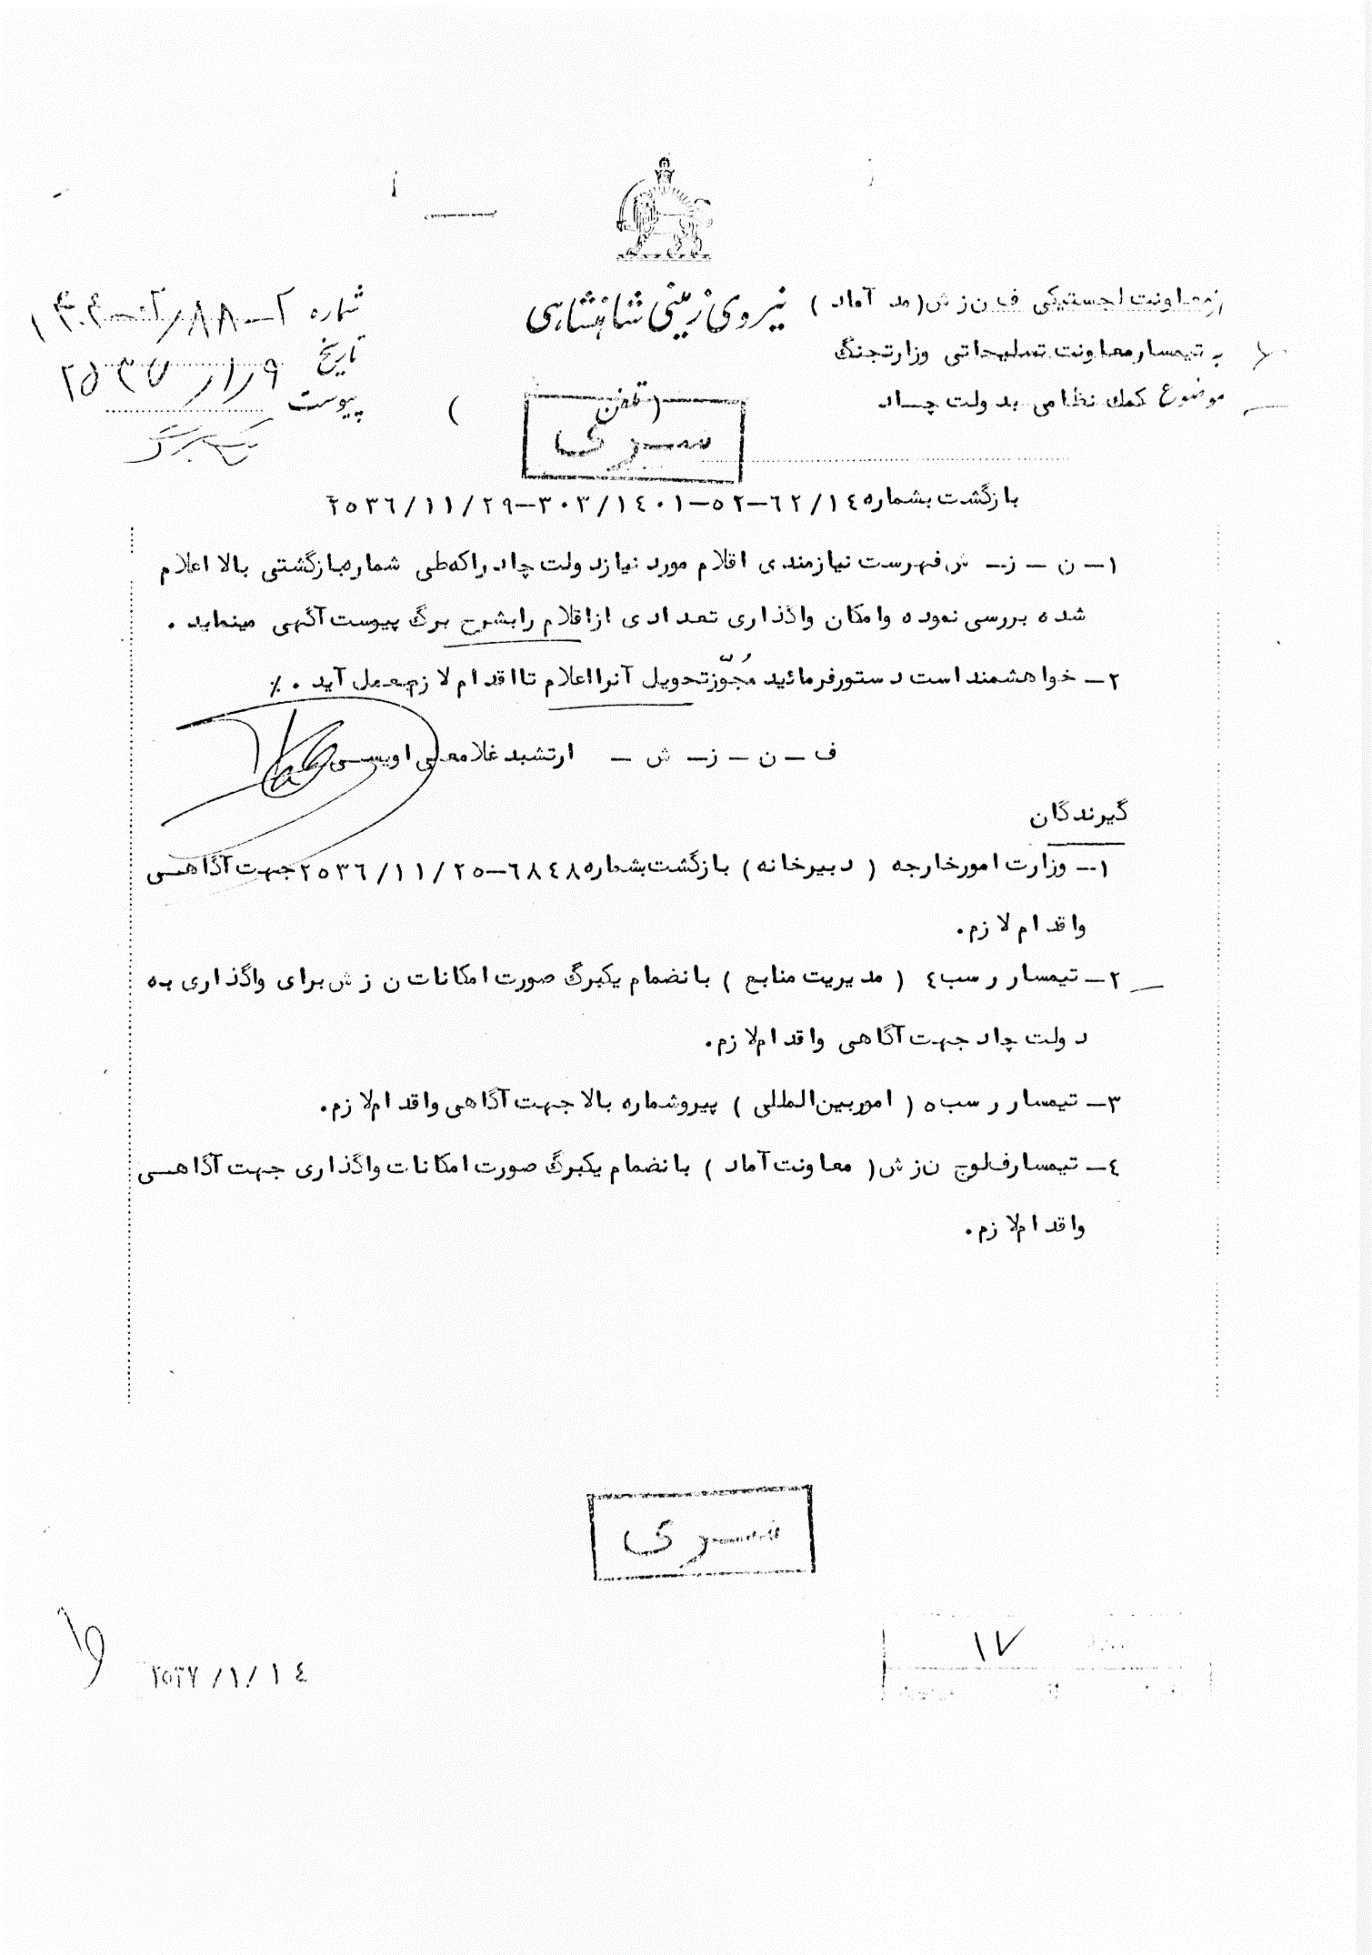 از معاونت لجستیکی ف ن ز ش ( مد آماد )
نیروی زمینی شاهنشاهی
شماره
به تیمسار معاونت تسلیحاتی وزارت جنگ
تاریخ ۲۵۳۷/۱/۹
موضوع کمک نظامی به دولت چاد
( تلفن )
پیوست
یک برگ
سری
بازگشت بشماره ۳۰۳/۱٤۰۱-۵۲-٦۲/۱٤-۲۵۳٦/۱۱/۲۹
۱- ن - ز - ش فهرست نیازمندی اقلام مورد نیاز دولت چاد را که طی شماره بازگشتی بالا اعلام
شده بررسی نموده و امکان واگذاری تعدادی از اقلام را بشرح برگ پیوست آگهی مینماید .
۲- خواهشمند است دستور فرمائید مُجوّز تحویل آنرا اعلام تا اقدام لازم بعمل آید . ٪
ف - ن - ز - ش - ارتشبد غلامعلی اویسی
گیرندگان
۱- وزارت امور خارجه ( دبیرخانه ) بازگشت بشماره ٦۸٤۸-۲۵۳٦/۱۱/۲۵ جهت آگاهی
و اقدام لازم.
۲- تیمسار ر سب٤ ( مدیریت منابع ) بانضمام یکبرگ صورت امکانات ن ز ش برای واگذاری به
دولت چاد جهت آگاهی و اقدام لازم.
۳- تیمسار ر سب۵ ( امور بین المللی ) پیرو شماره بالا جهت آگاهی و اقدام لازم.
٤- تیمسار ف لوج ن ز ش ( معاونت آماد ) بانضمام یکبرگ صورت امکانات واگذاری جهت آگاهی
و اقدام لازم.
سری
۱۷
۲۵۳۷/۱/۱٤